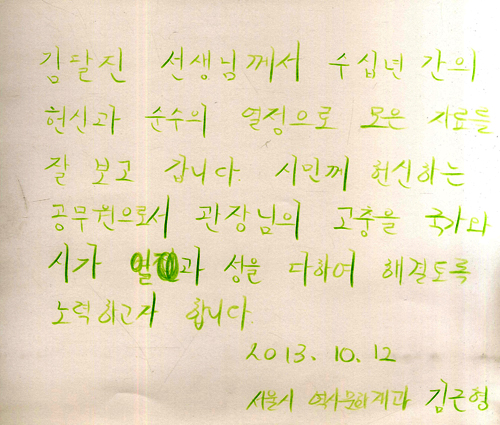 김달진 선생님께서 수십년 간의
헌신과 순수의 열정으로 모은 자료들
잘 보고 갑니다. 시민께 헌신하는
공무원으로서 관장님의 고충을 국가와
시가 열과 성을 다하여 해결토록
노력하고자 합니다.
2013. 10. 12
서울시 역사문화재과 김근형